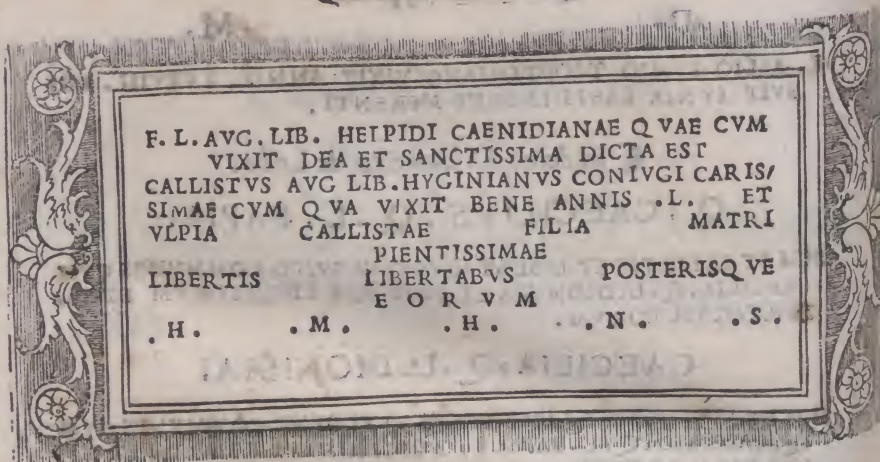 F. L. AVG. LIB. HELPIDI CAENIDIANAE QVAE CVM
VIXIT DEA ET SANCTISSIMA DICTA EST
CALLISTVS AVG LIB. HYGINIANVS CONIVGI CARIS/
SIMAE CVM QVA VIXIT BENE ANNIS .L. ET
VLPIA CALLISTAE FILIA MATRI
PIENTISSIMAE
LIBERTIS LIBERTABVS POSTERISQVE
EORVM
.H. .M. .H. .N. .S.